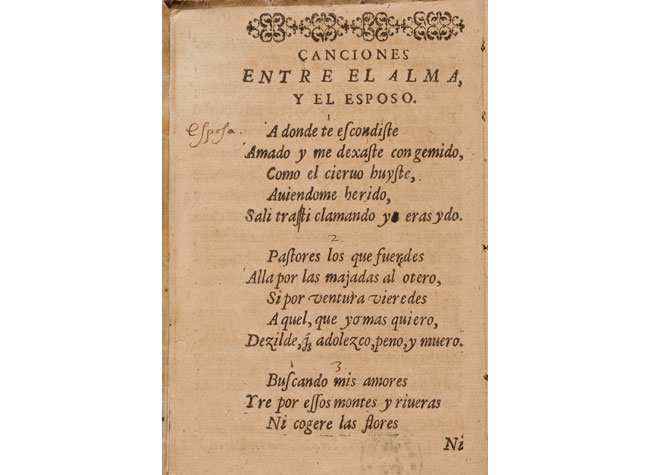 CANCIONES
ENTRE EL ALMA,
Y EL ESPOSO.
1
esposa.
A donde te eſcondiſte
Amado y me dexaſte con gemido,
Como el cieruo huyſte,
Auiendome herido,
Sali traſti clamando y eras ydo.
2
Paſtores los que fuerdes
Alla por las majadas al otero,
Si por ventura vieredes
A quel, que yo mas quiero,
Dezilde, q̃ adolezco, peno, y muero.
3
Buſcando mis amores
Yre por eſſos montes y riueras
Ni cogere las flores
Ni